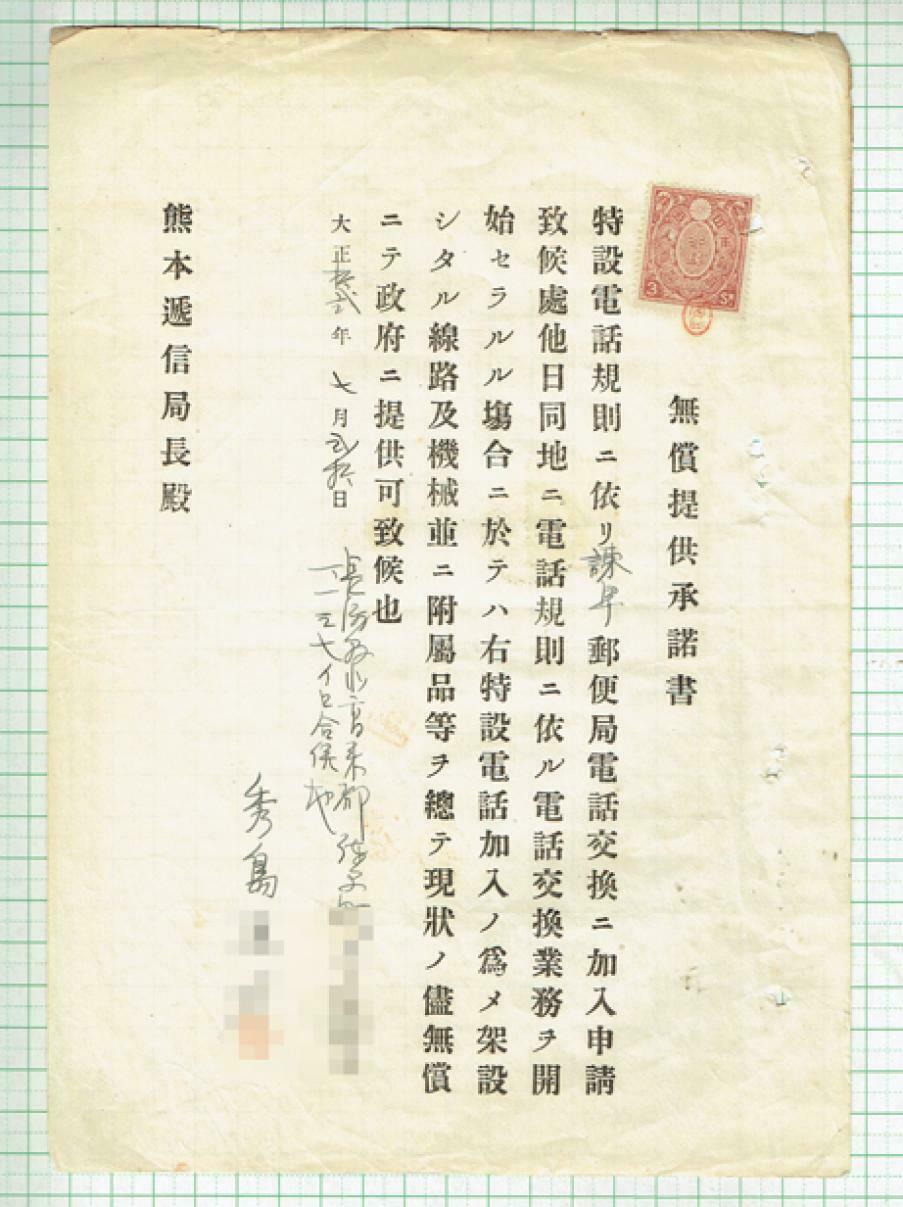 無償提供承諾書
特設電話規則ニ依リ諫早郵便局電話交換ニ加入申請
致候處他日同地ニ電話規則ニ依ル電話交換業務ヲ開
始セラルル塲合ニ於テハ右特設電話加入ノ爲メ架設
シタル線路及機械並ニ附屬品等ヲ總テ現狀ノ儘無償
ニテ政府ニ提供可致候也
大正拾弍年七月弐拾日
長崎縣北高来郡諫早
一三七イロ合併地
秀島
熊本遞信局長殿
3 Sn